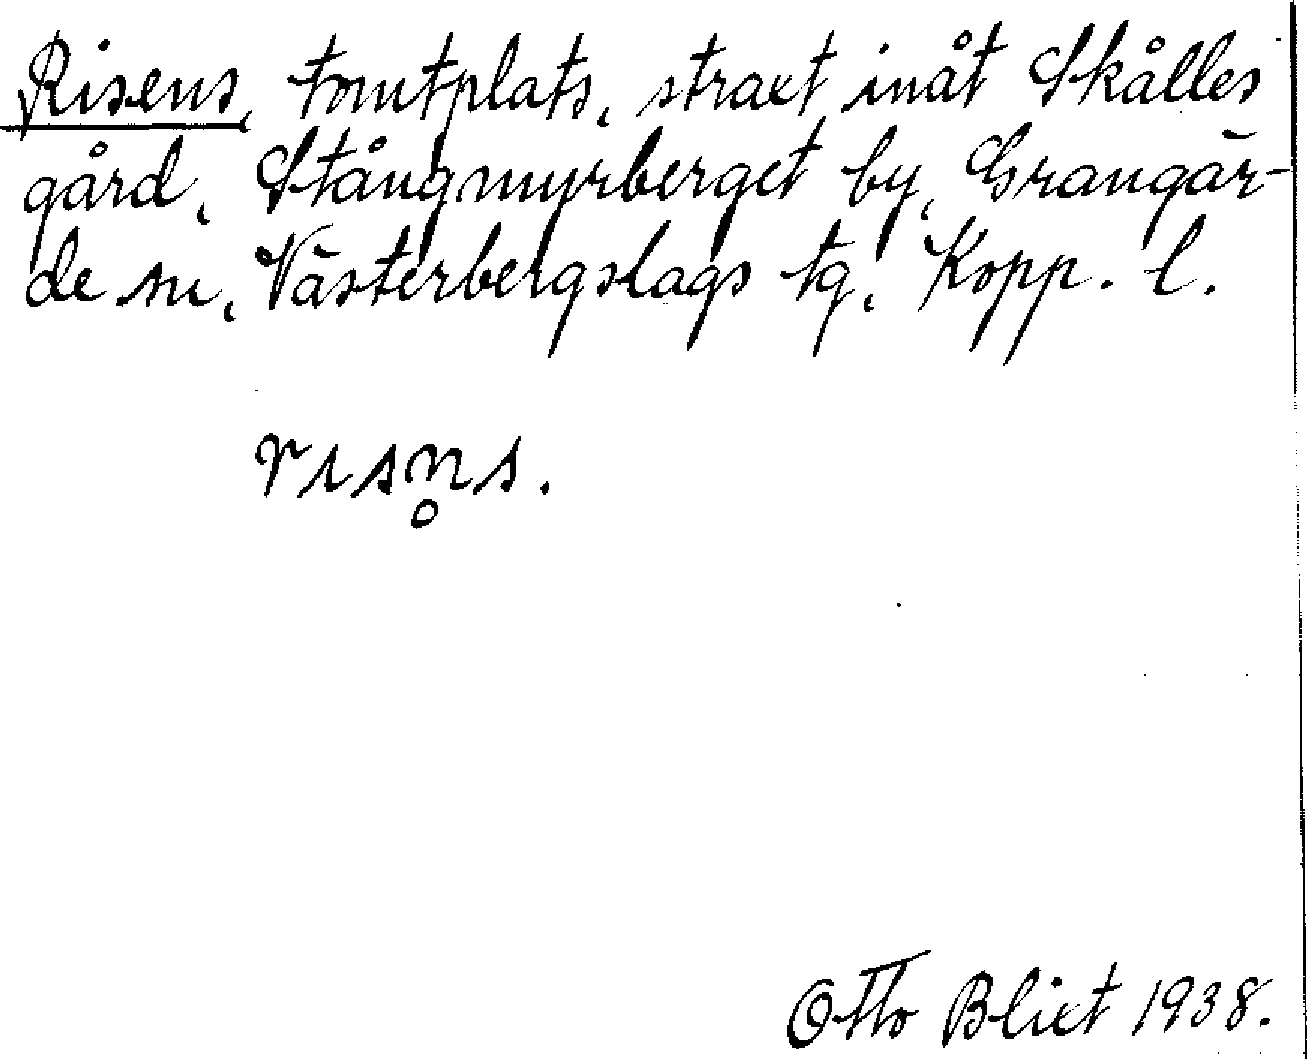 Risens, tomtplats, straxt inåt Skålles
gård, Stångmyrberget by, Grangär-
de sn, Västerbergslags tg, Kopp. l.
rısn̥s.
Otto Blixt 1938.